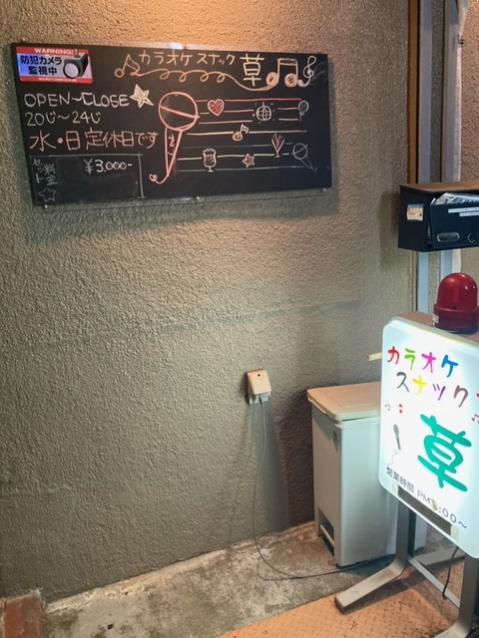 WARNING!
防犯カメラ
監視中
カラオケ スナック 草
OPEN～CLOSE
20じ～24じ
水・日 定休日です
セット料金
¥3,000-
カラオケ
スナック
草
営業時間 PM :00～